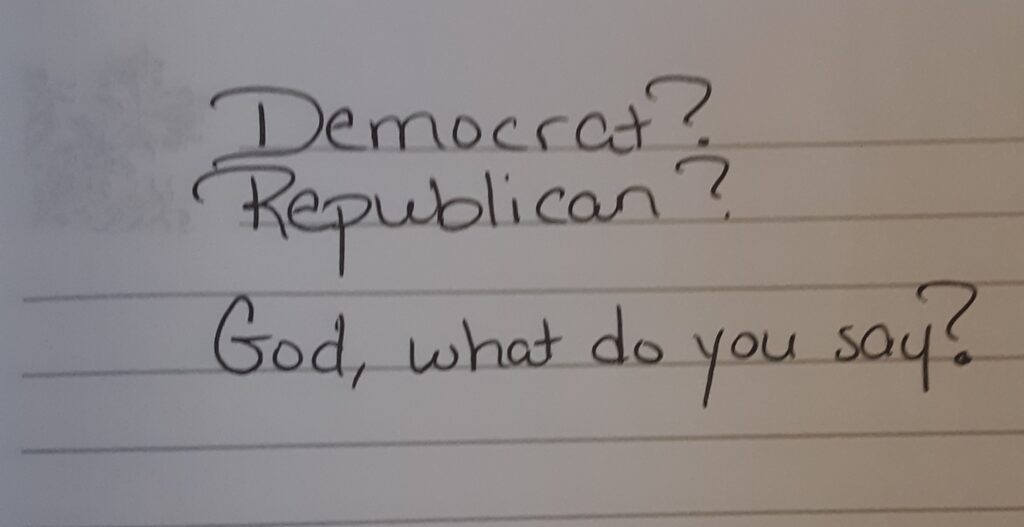 Democrat?
Republican?
God, what do you say?